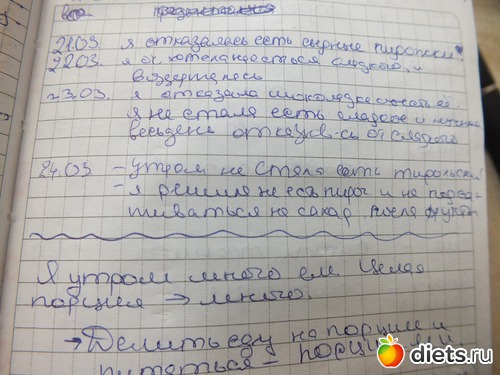 21.03 я отказалась есть сырные пирожки
22.03. я оч хотела наесться сладкого, и
воздержалась
23.03. я отказала шоколадке
я не стала есть сладкое и
весь день отказыв-сь от сладкого
24.03 - утром не стала есть тирольский
- я решила не есть пирог и не подса-
живаться на сахар после
Я утром много ем целая
порция → много.
→ Делить еду на порции и
питаться - порция
diets.ru